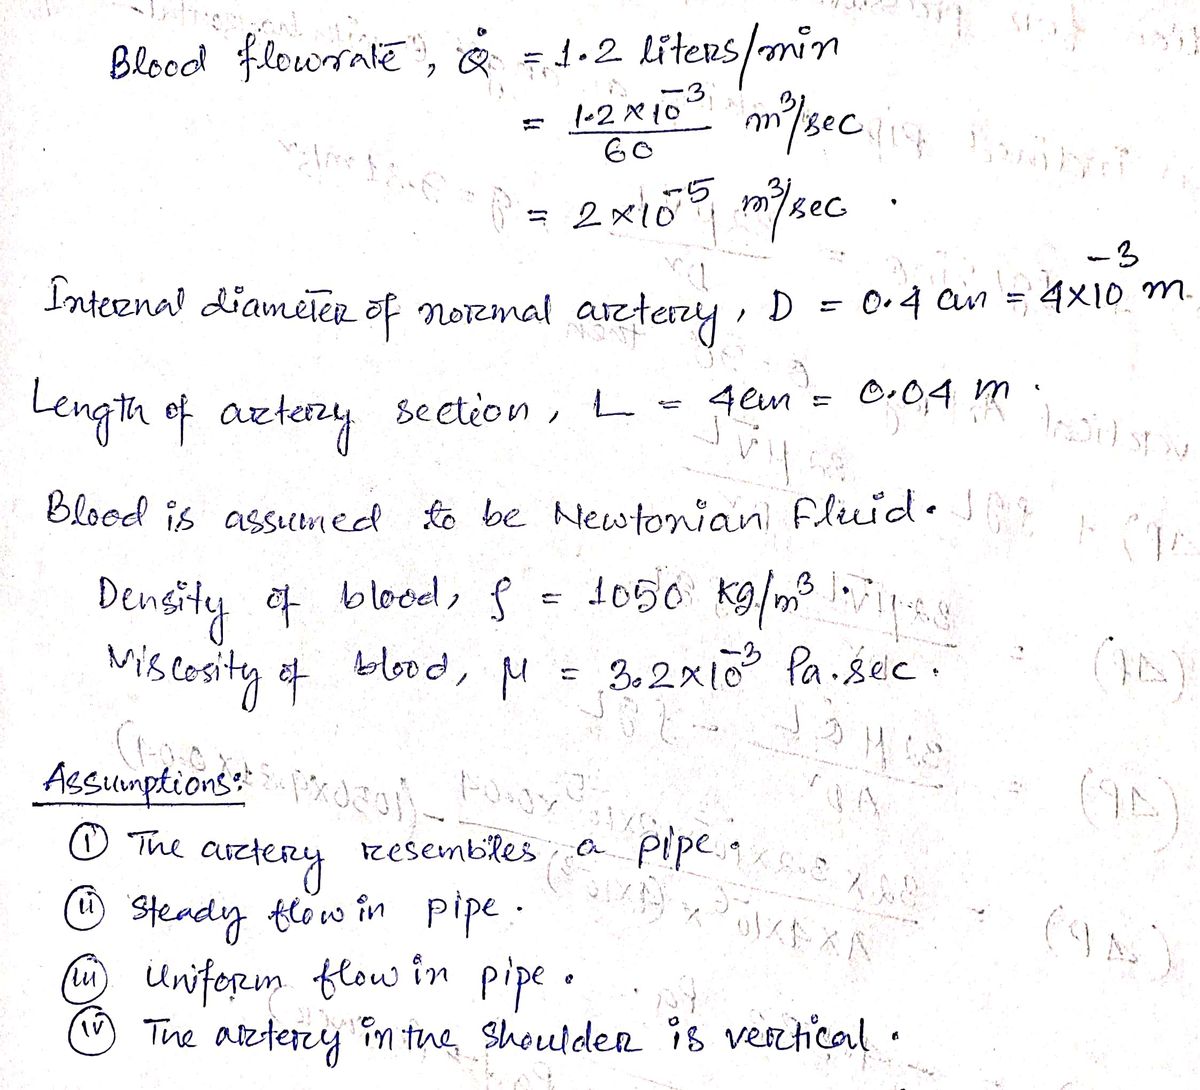 Blood flowrate, Q̇ = 1.2 liters/min
= 1.2×10⁻³/60 m³/sec
= 2×10⁻⁵ m³/sec.
Internal diameter of normal artery, D = 0.4 cm = 4×10⁻³ m.
Length of artery section, L = 4cm = 0.04 m.
Blood is assumed to be Newtonian Fluid.
Density of blood, ρ = 1050 kg/m³
Viscosity of blood, μ = 3.2×10⁻³ Pa.sec.
Assumptions:
(i) The artery resembles a pipe.
(ii) Steady flow in pipe.
(iii) Uniform flow in pipe.
(iv) The artery in the shoulder is vertical.